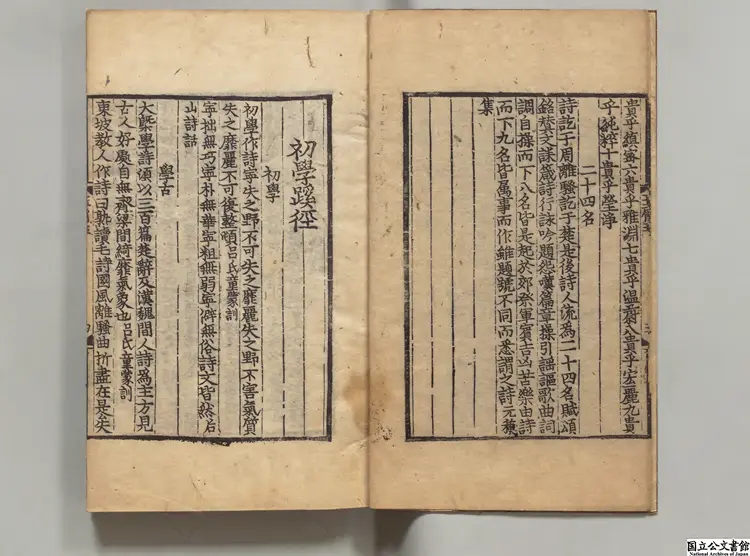 貴乎鎮密六貴乎雅淵七貴乎温蔚八貴乎宏麗九貴
乎純粹十貴乎瑩淨
二十四名
詩訖于周離騷訖于楚是後詩人流為二十四名賦頌
銘賛文誄箴詩行詠吟題怨嘆篇章操引謡謳歌曲詞
調自操而下八名皆是起於郊祭軍賓吉凶苦樂由詩
而下九名皆属事而作雖題號不同而悉謂之詩元稹
集
初學蹊徑
初學
初學作詩寧失之野不可失之靡麗失之野不害氣質
失之靡麗不可復整頓吕氏童蒙訓
寧拙無巧寧朴無華寧粗無弱寧僻無俗詩文皆然后
山詩話
學古
大槩學詩須以三百篇楚辭及漢魏間人詩為主方見
古人好處自無齊梁間綺靡氣象也吕氏童蒙訓
東坡教人作詩曰熟讀毛詩國風離騷曲折盡在是矣
国立公文書館
National Archives of Japan